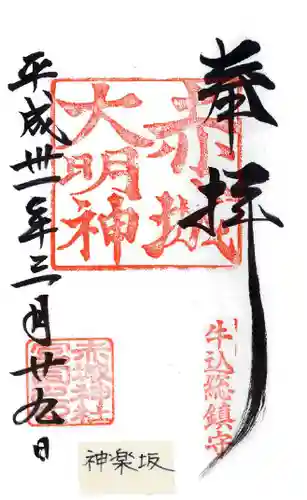 奉拝
赤城
大明神
牛込総鎮守
平成卅一年三月廿九日
赤城神社
神楽坂